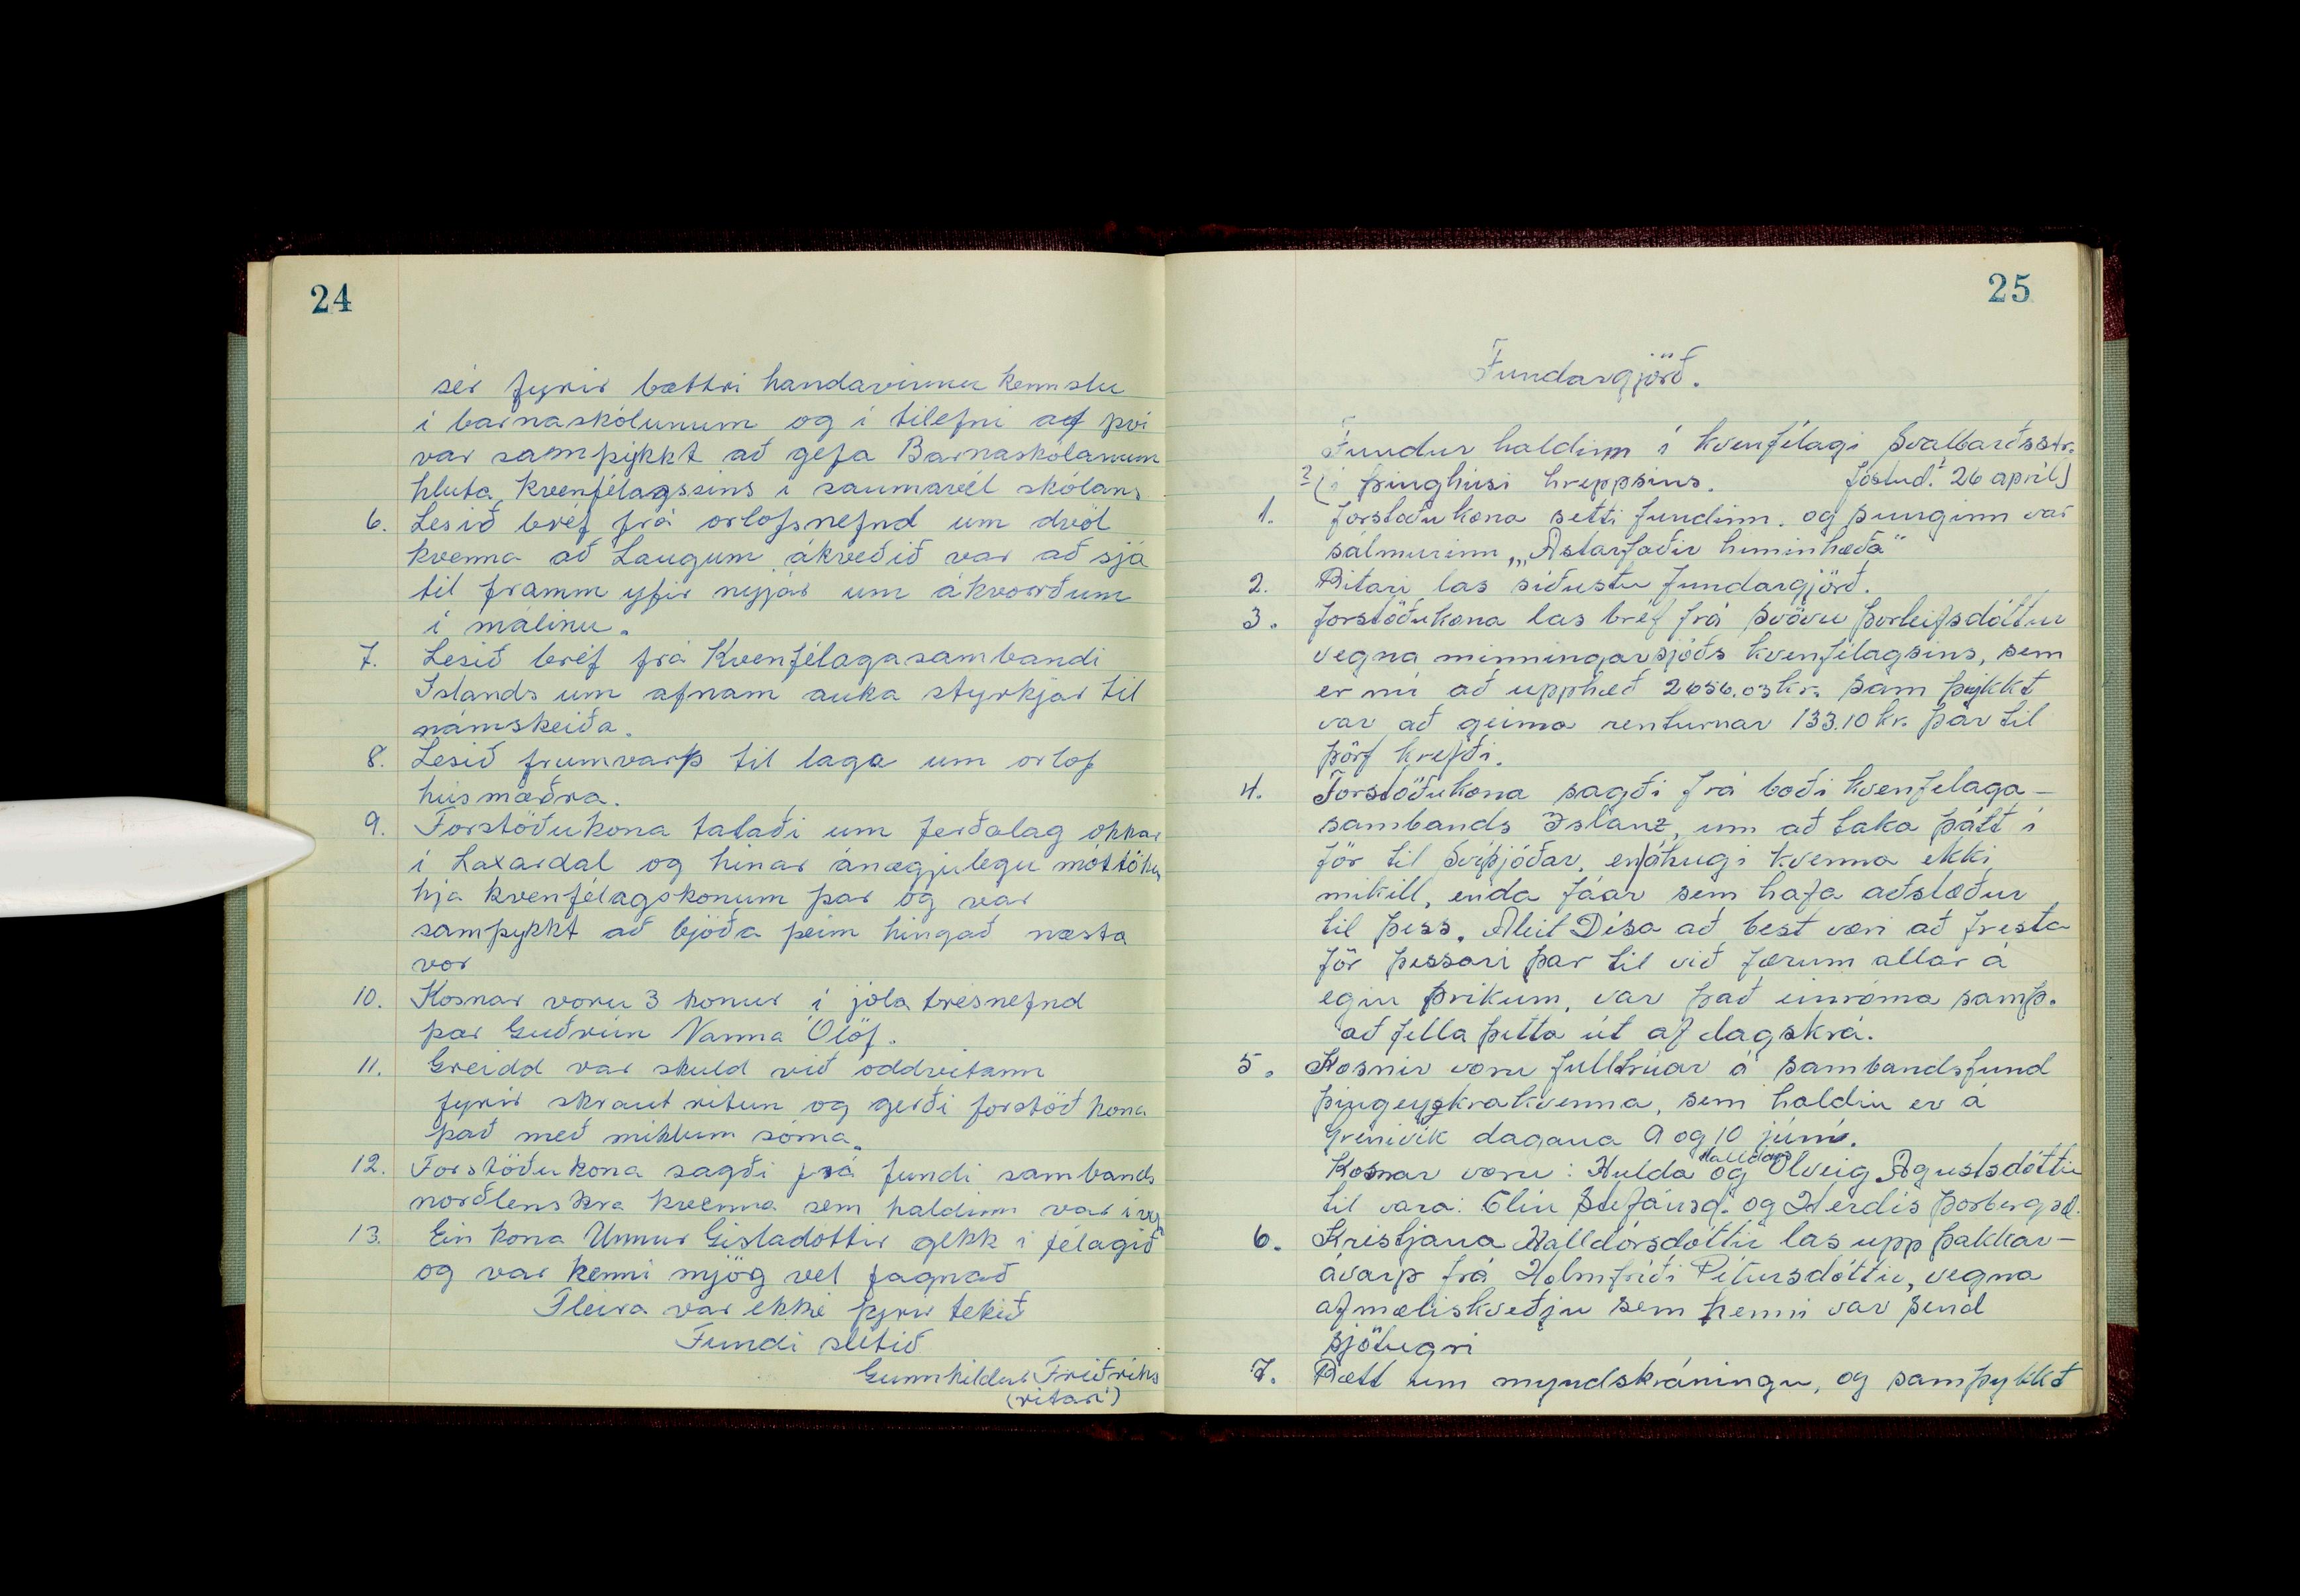 24
sér fyrir bættri handavinnu kennslu
í barnaskólunum og í tilefni af því
var samþykkt að gefa Barnaskólanum
hluta Kvenfélagssins í saumavél skólans
6. Lesið bréf frá orlofsnefnd um dvöl
kvenna að Laugum ákveðið var að sjá
til framm yfir nyjár um ákvorðum
í málinu.
7. Lesið bréf frá Kvenfélagasambandi
Islands um afnam auka styrkjar til
námskeiða.
8. Lesið frumvarp til laga um orlof
húsmæðra.
9. Forstöðukona talaði um ferðalag okkar
í Laxardal og hinar ánægjulegu móttöku
hjá kvenfélagskonum þar og var
samþykkt að bjóða þeim hingað næsta
vor
10. Kosnar voru 3 konur í jóla trésnefnd
þar Guðrún Nanna Ólöf.
11. Greidd var skuld við oddvitann
fyrir skraut ritun og gerði forstöð kona
það með miklum sóma.
12. Forstöðukona sagði frá fundi sambands
norðlenskra kvenna sem haldinn var í
13. Ein kona Unnur Gisladóttir gekk í félagið
og var henni mjög vel fagnað
Fleira var ekki fyrir tekið
Fundi slitið
Gunnhildur Friðriks
(ritari)
25
Fundargjörð.
Fundur haldinn í kvenfélagi Svalbarðsstr.
? (í þinghúsi hreppsins. föstud. 26 apríl)
1. forstöðukona setti fundinn. og sunginn var
sálmurinn „Ástarfaðir himinhæða"
2. Ritari las síðustu fundargjörð.
3. forstöðukona las bréf frá Svövu Þorleifsdóttur
vegna minningarsjóðs kvenfélagsins, sem
er nú að upphæð 2656.03 kr. sam þykkt
var að geima renturnar 133.10 kr. þar til
þörf krefði.
4. Forstöðukona sagði frá boði kvenfelaga-
sambands Islanz, um að taka þátt í
för til Svíþjóðar, en áhugi kvenna ekki
mikill, enda fáar sem hafa aðstæður
til þess. Aleit Dísa að best væri að fresta
för þessari þar til við færum allar á
egin prikum, var það einróma samþ.
að fella þetta út af dagskrá.
5. Kosnir voru fulltrúar á sambandsfund
þingeyskrakvenna, sem haldin er á
Grenivík dagana 9 og 10 júní.
Halldórs
Kosnar voru: Hulda og Ólveig Agústsdóttir
til vara: Elín Stefánsd. og Herdís Þorbergsd.
6. Kristjana Halldórsdóttir las upp þakkar-
ávarp frá Hólmfríði Pétursdóttir, vegna
afmæliskveðju sem henni var send
sjötugri
7. Rætt um myndskráningu, og samþykkt